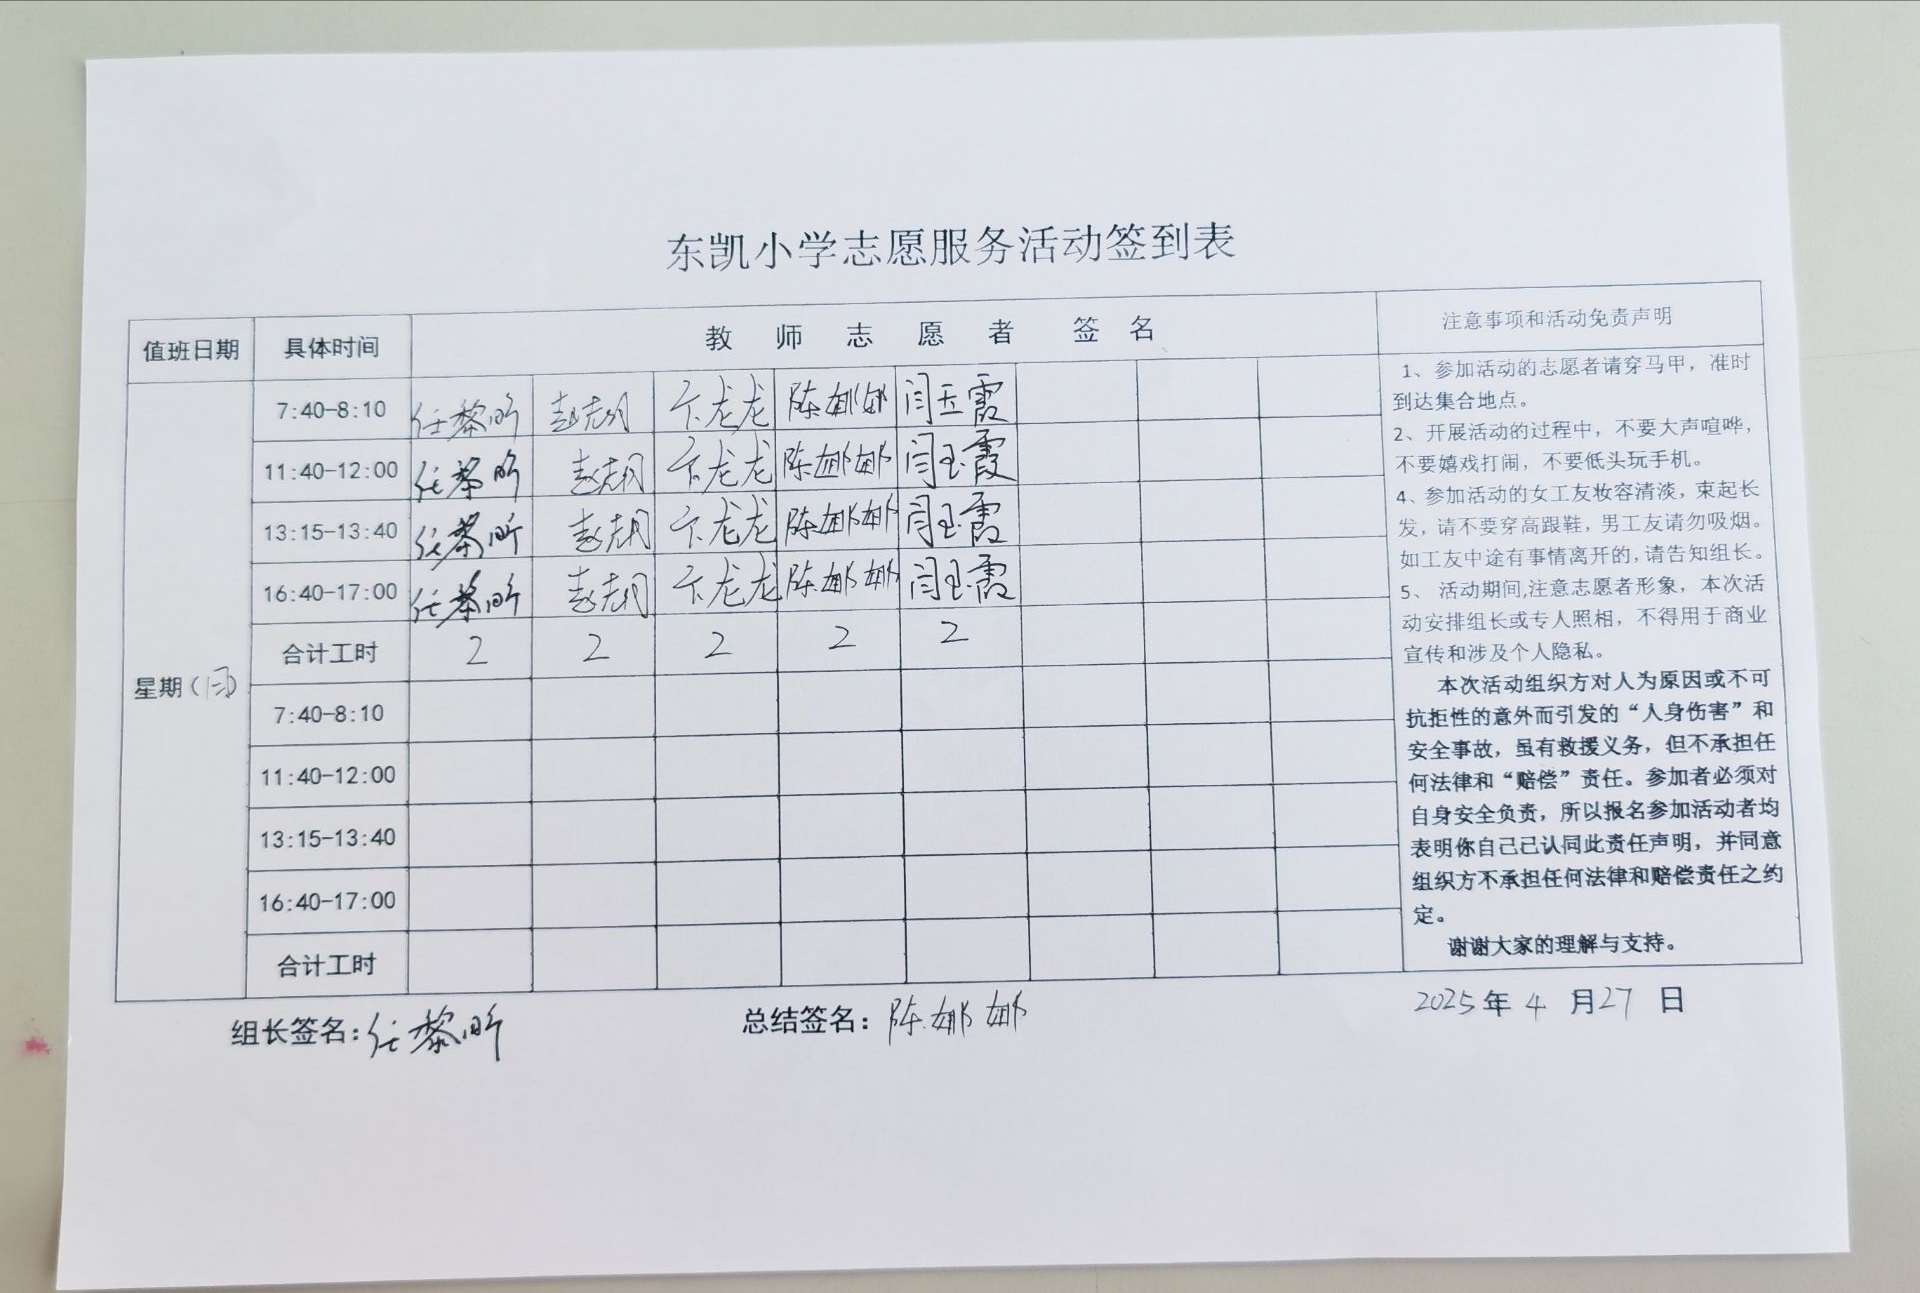 东凯小学志愿服务活动签到表
值班日期 具体时间 教师志愿者 签名 注意事项和活动免责声明
7:40-8:10 任黎昕 赵靓 卞龙龙 陈娜娜 闫玉霞
11:40-12:00 任黎昕 赵靓 卞龙龙 陈娜娜 闫玉霞
13:15-13:40 任黎昕 赵靓 卞龙龙 陈娜娜 闫玉霞
16:40-17:00 任黎昕 赵靓 卞龙龙 陈娜娜 闫玉霞
合计工时 2 2 2 2 2
星期(日)
7:40-8:10
11:40-12:00
13:15-13:40
16:40-17:00
合计工时
1、参加活动的志愿者请穿马甲，准时
到达集合地点。
2、开展活动的过程中，不要大声喧哗，
不要嬉戏打闹，不要低头玩手机。
4、参加活动的女工友妆容清淡，束起长
发，请不要穿高跟鞋，男工友请勿吸烟。
如工友中途有事情离开的，请告知组长。
5、 活动期间,注意志愿者形象，本次活
动安排组长或专人照相，不得用于商业
宣传和涉及个人隐私。
本次活动组织方对人为原因或不可
抗拒性的意外而引发的“人身伤害”和
安全事故，虽有救援义务，但不承担任
何法律和“赔偿”责任。参加者必须对
自身安全负责，所以报名参加活动者均
表明你自己已认同此责任声明，并同意
组织方不承担任何法律和赔偿责任之约
定。
谢谢大家的理解与支持。
组长签名:任黎昕 总结签名：陈娜娜 2025年4月27日